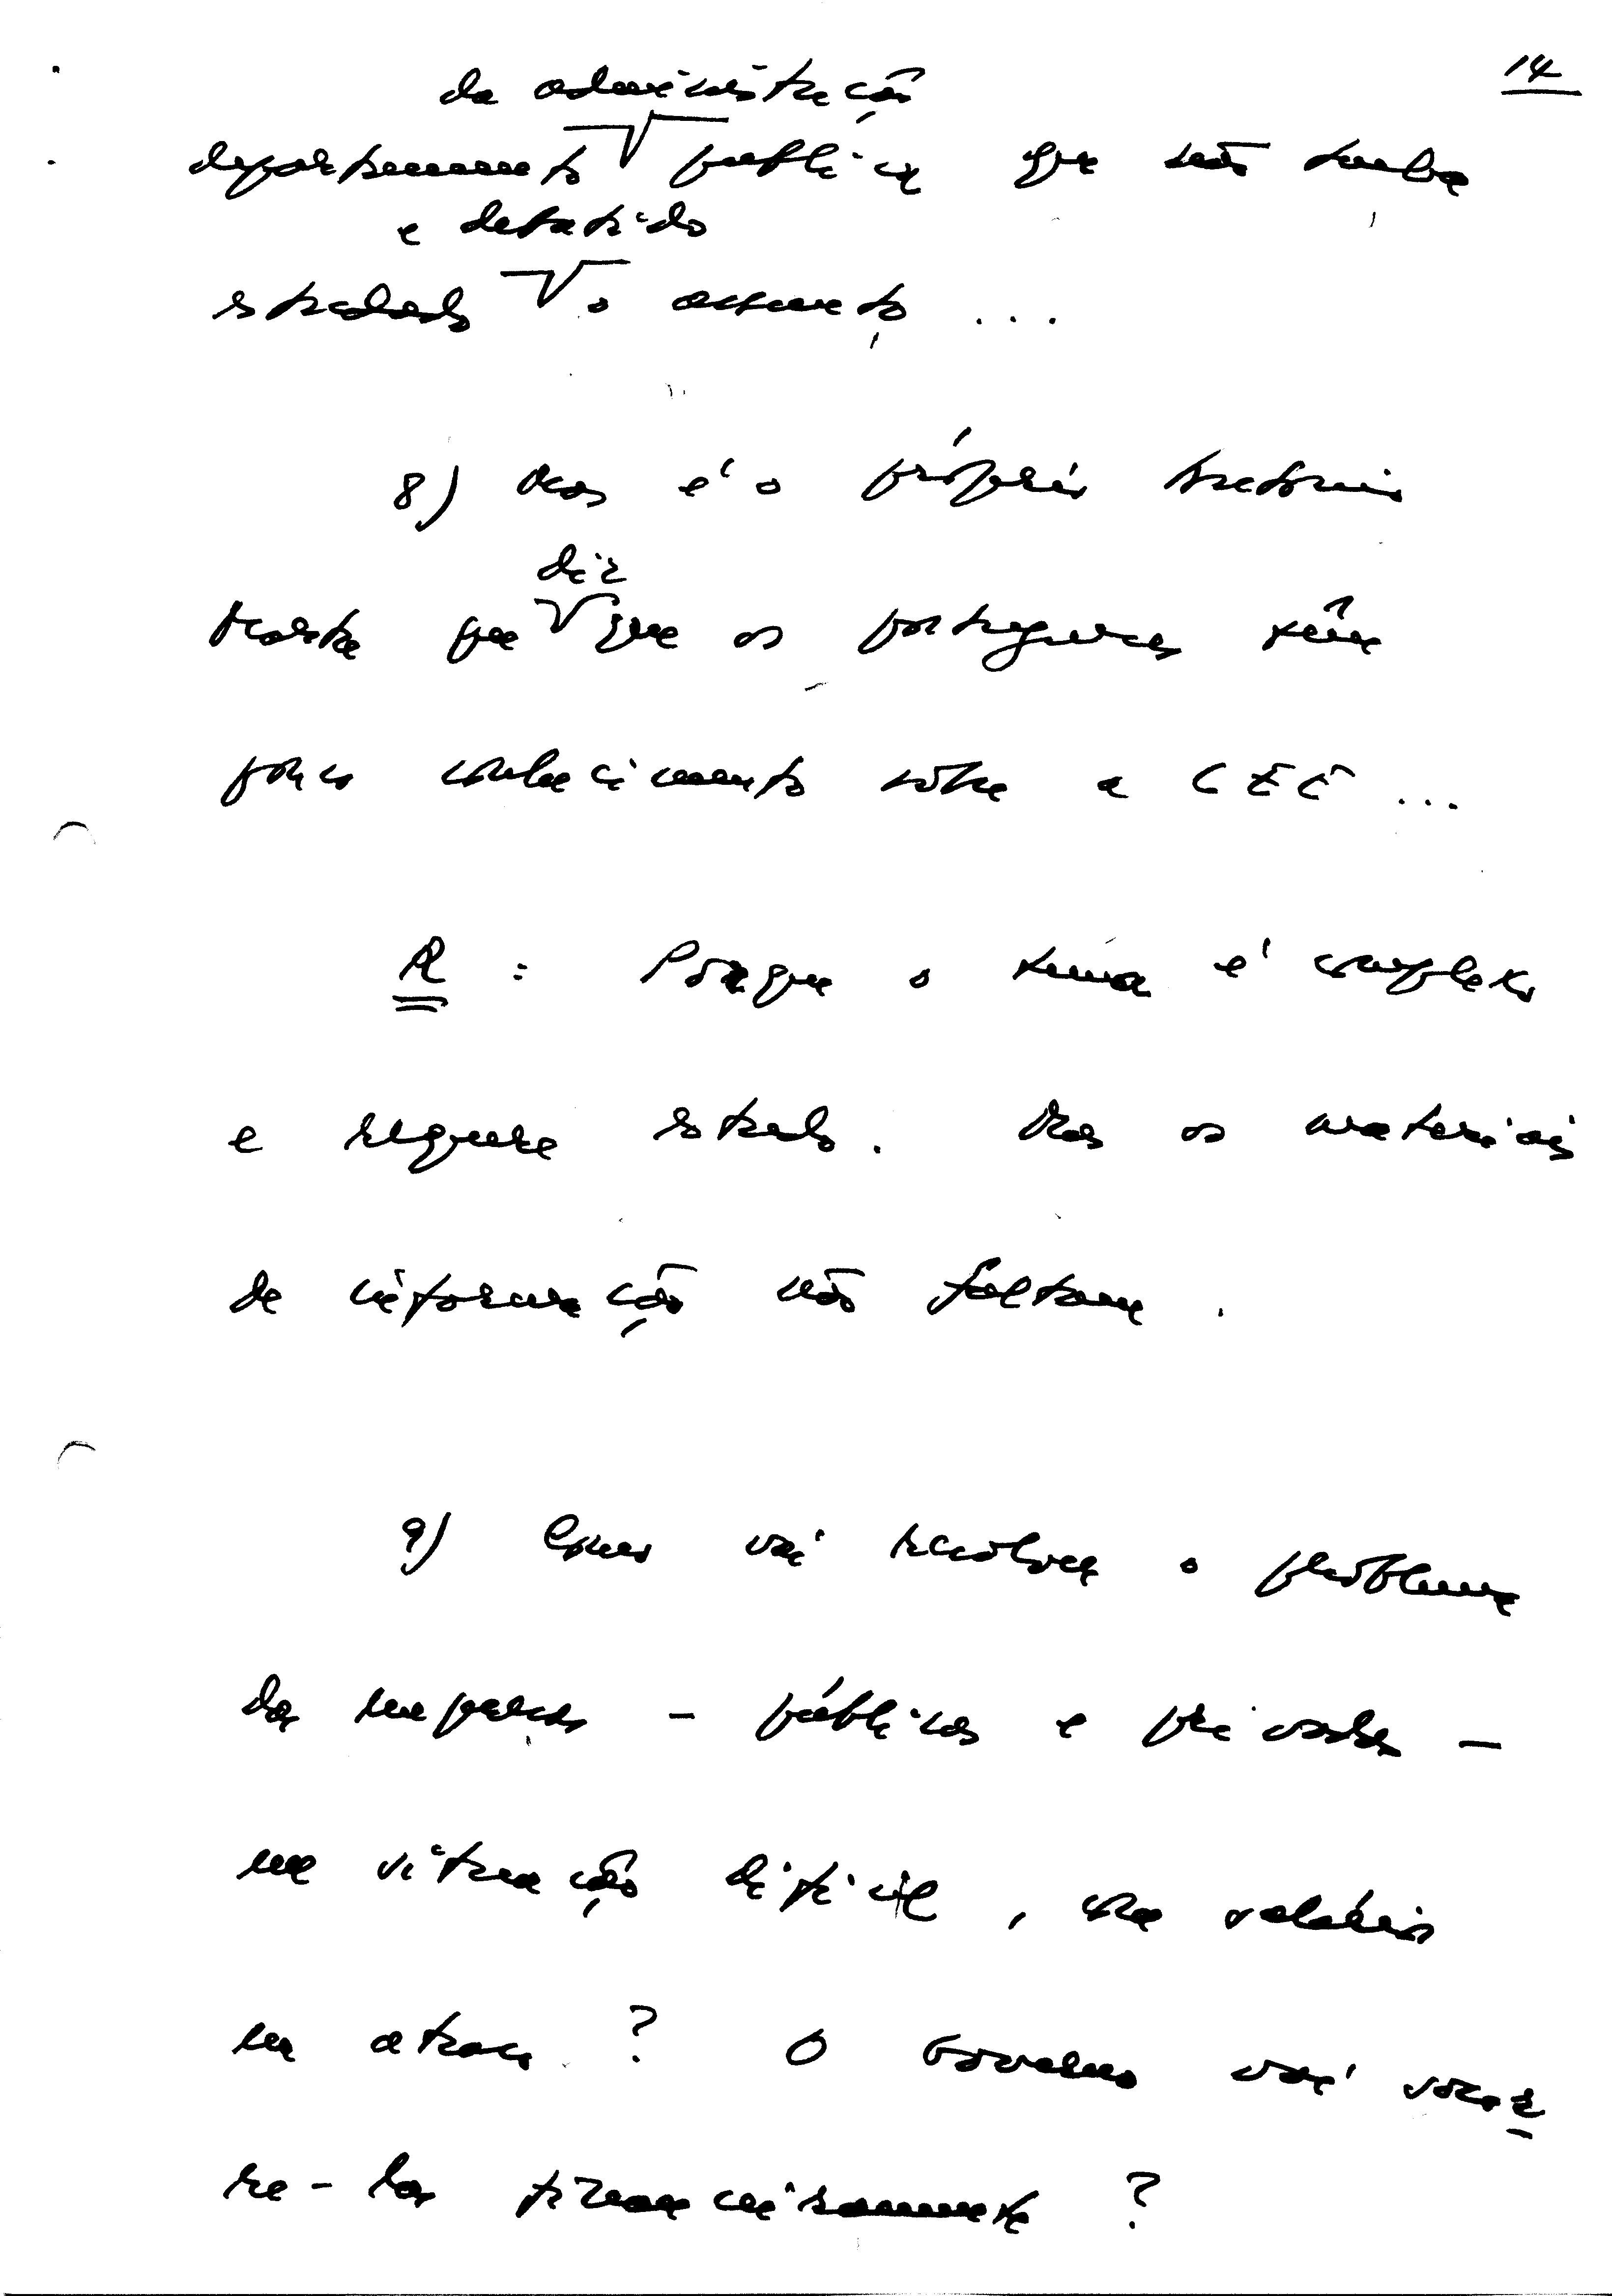 14
da administração
departamento V pública que não tenha
e debatido
estudado V o assunto ...
8) Mas é o próprio
diz
que V que os portugueses têm
pouco conhecimento sôbre a CEE ...
R : Porque o tema é complexo
e requere estudo. Mas os materiais
de informação não faltam.
9) Como vai resolver o problema
das empresas - públicas e privadas -
em situação difícil, com salários
em atraso ? O Governo vai socor
re-las financeiramente ?